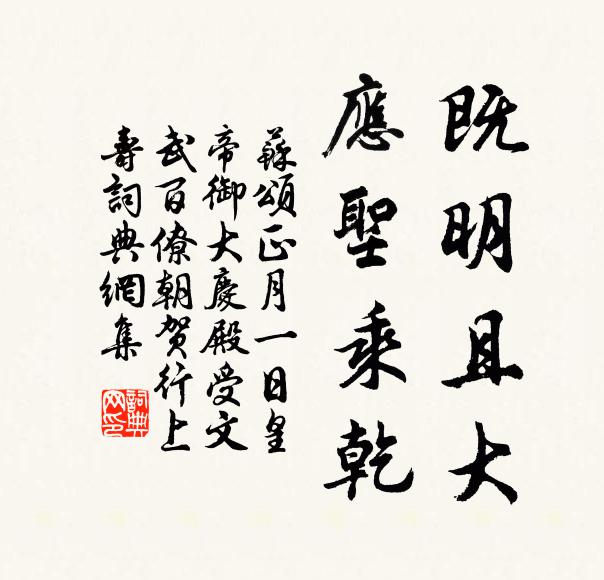 既明且大
應聖乘乾
蘇頌正月一日皇
帝御大慶殿受文
武百僚朝賀行上
壽詞典網集
詞典網印